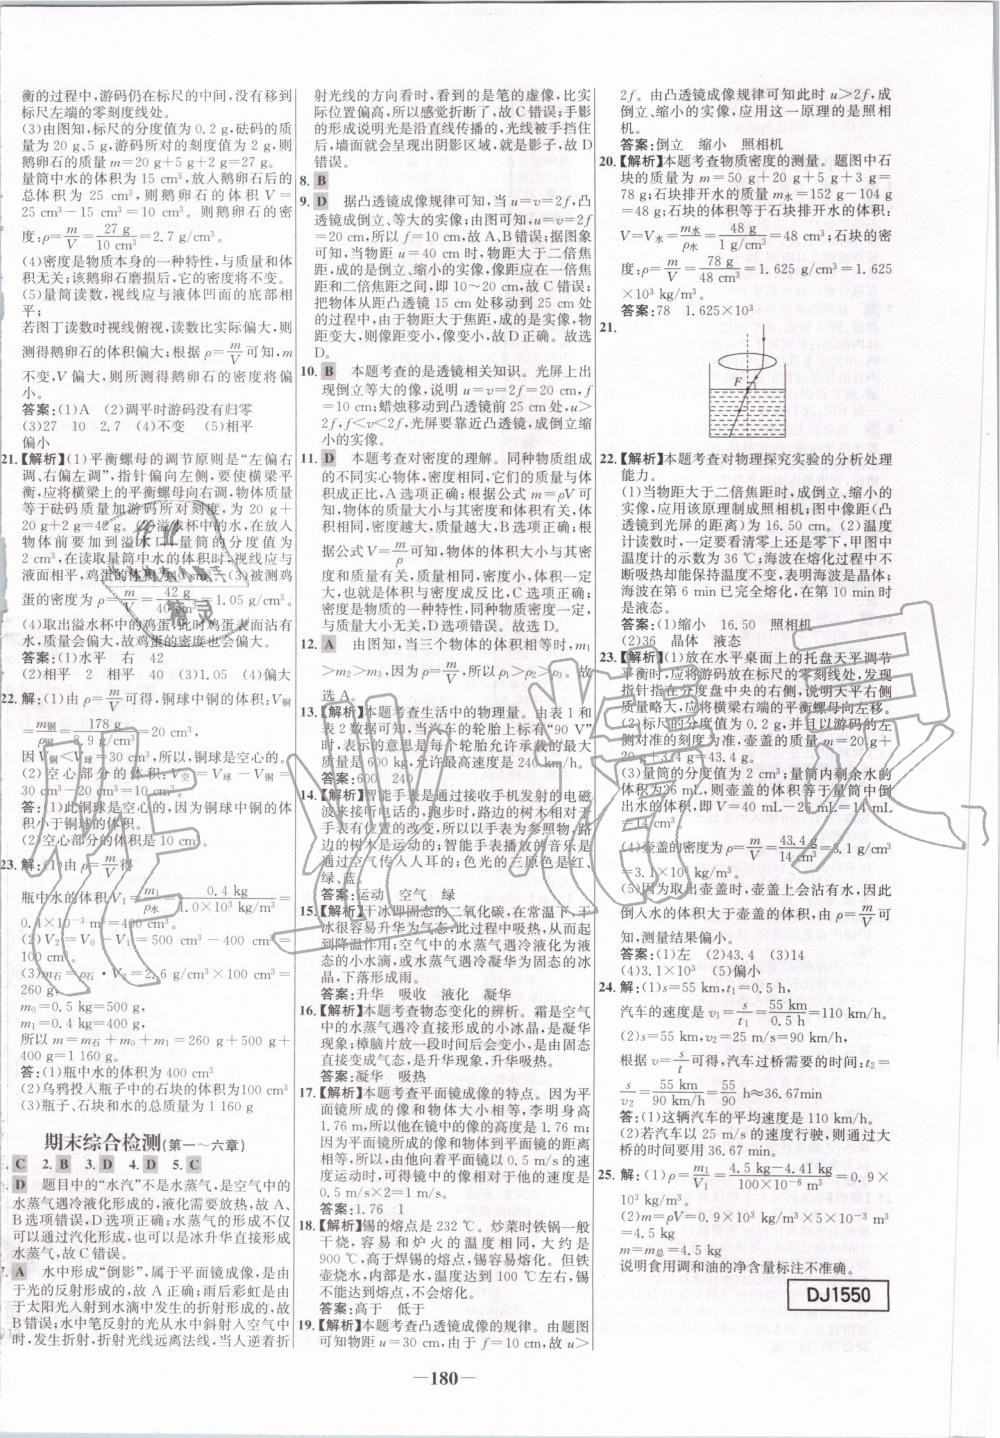 衡的过程中,游码仍在标尺的中间,没有移到
标尺左端的零刻度线处。
(3)由图知,标尺的分度值为 0.2 g,砝码的质
量为 20 g、5 g,游码所对的刻度值为 2 g,则
鹅卵石的质量 m=20 g+5 g+2 g=27 g。
量筒中水的体积为 15 cm³,放入鹅卵石后的
总体积为 25 cm³,则鹅卵石的体积 V=
25 cm³-15 cm³=10 cm³。则鹅卵石的密
度:ρ=m/V=27 g/10 cm³=2.7 g/cm³。
(4)密度是物质本身的一种特性,与质量和体
积无关;该鹅卵石磨损后,它的密度将不变。
(5)量筒读数,视线应与液体凹面的底部相
平;
若图丁读数时视线俯视,读数比实际偏大,则
测得鹅卵石的体积偏大;根据 ρ=m/V可知,m
不变,V 偏大,则所测得鹅卵石的密度将偏
小。
答案:(1)A (2)调平时游码没有归零
(3)27 10 2.7 (4)不变 (5)相平
偏小
21.【解析】(1)平衡螺母的调节原则是“左偏右
调、右偏左调”,指针偏向左侧,要使横梁平
衡,应将横梁上的平衡螺母向右调,物体质量
等于砝码质量加游码所对刻度,为 20 g+
20 g+2 g=42 g。(2)溢水杯中的水,在放入
物体前要加到溢水口,量筒的分度值为
2 cm³,在读取量筒中水的体积时,视线应与
液面相平,鸡蛋的体积为 40 cm³。(3)被测鸡
蛋的密度为 ρ=m/V=42 g/40 cm³=1.05 g/cm³。
(4)取出溢水杯中的鸡蛋,此时鸡蛋表面沾有
水,质量会偏大,故鸡蛋的密度也会偏大。
答案:(1)水平 右 42
(2)相平 2 相平 40 (3)1.05 (4)偏大
22.解:(1)由 ρ=m/V可得,铜球中铜的体积:V铜
=m铜/ρ铜=178 g/8.9 g/cm³=20 cm³,
因 V铜<V球=30 cm³,所以,铜球是空心的。
(2)空心部分的体积:V空=V球-V铜=
30 cm³-20 cm³=10 cm³。
答:(1)此铜球是空心的,因为铜球中铜的体
积小于铜球的体积。
(2)空心部分的体积是 10 cm³。
23.解:(1)由 ρ=m/V得
瓶中水的体积 V₁=m₁/ρ水=0.4 kg/1.0×10³ kg/m³=
0.4×10⁻³ m³=400 cm³。
(2)V₂=V₀-V₁=500 cm³-400 cm³=
100 cm³。
(3)m石=ρ石·V₂=2.6 g/cm³×100 cm³=
260 g,
m₀=0.5 kg=500 g,
m₁=0.4 kg=400 g,
所以 m=m石+m₀+m₁=260 g+500 g+
400 g=1 160 g。
答:(1)瓶中水的体积为 400 cm³
(2)乌鸦投入瓶子中的石块的体积为100 cm³
(3)瓶子、石块和水的总质量为 1 160 g
期末综合检测(第一～六章)
C 2. B 3. D 4. D 5. C
D 题目中的“水汽”不是水蒸气,是空气中的
水蒸气遇冷液化形成的,液化需要放热,故 A、
B 选项错误,D 选项正确;水蒸气的形成不仅
可以通过汽化形成,也可以是冰升华直接形成
水蒸气,故 C 错误。
A 水中形成“倒影”,属于平面镜成像,是由
于光的反射形成的,故 A 正确;雨后彩虹是由
于太阳光入射到水滴中发生的折射形成的,故
B 错误;水中笔反射的光从水中斜射入空气中
时,发生折射,折射光线远离法线,当人逆着折
射光线的方向看时,看到的是笔的虚像,比实
际位置偏高,所以感觉折断了,故 C 错误;手影
的形成说明光是沿直线传播的,光线被手挡住
后,墙面就会出现阴影区域,就是影子,故 D
错误。
8. B
9. D 据凸透镜成像规律可知,当 u=v=2f,凸
透镜成倒立、等大的实像;由图可知,u=v=2f
=20 cm,所以 f=10 cm,故 A、B 错误;据图象
可知,当物距 u=40 cm 时,物距大于二倍焦
距,成的是倒立、缩小的实像,像距应在一倍焦
距和二倍焦距之间,即 10～20 cm,故 C 错误;
把物体从距凸透镜 15 cm 处移动到 25 cm 处
的过程中,由于物距大于焦距,成的是实像,物
距变大,则像距变小,像变小,故 D 正确。故选
D。
10. B 本题考查的是透镜相关知识。光屏上出
现倒立等大的像,说明 u=v=2f=20 cm,f
=10 cm;蜡烛移动到凸透镜前 25 cm 处,u>
2f,f<v<2f,光屏要靠近凸透镜,成倒立缩
小的实像。
11. D 本题考查对密度的理解。同种物质组成
的不同实心物体,密度相同,它们的质量与体
积成正比,A 选项正确;根据公式 m=ρV 可
知,物体的质量大小与密度和体积有关,体积
相同,密度越大,质量越大,B 选项正确;根
据公式 V=m/ρ可知,物体的体积大小与密
度和质量有关,质量相同,密度小的,体积大,
也就是体积与密度成反比,C 选项正确;密度
是物质的一种特性,同种物质,密度一定,与
质量、体积无关,D 选项错误。故选 D。
12. A 由图知,当三个物体的体积相等时,m₁
>m₂>m₃,因为 ρ=m/V,所以 ρ₁>ρ₂>ρ₃。故
选 A。
13.【解析】本题考查生活中的物理量。由表 1 和
表 2 数据可知,当汽车的轮胎上标有“90 V”
时,表示的意思是每个轮胎允许承载的最大
质量是 600 kg,允许最高速度是 240 km/h。
答案:600 240
14.【解析】智能手表是通过接收手机发射的电磁
波接听电话的,跑步时,路边的树木相对于
手表有位置的改变,所以以手表为参照物,路
边的树木是运动的;智能手表播放的音乐是
通过空气传入人耳的;色光的三原色是红、
绿、蓝。
答案:运动 空气 绿
15.【解析】干冰即固态的二氧化碳,在常温下,干
冰很容易升华为气态,此过程中吸热,从而起
到降温作用;空气中的水蒸气遇冷液化为液态
的小水滴,或水蒸气遇冷凝华为固态的小冰
晶,下落形成雨。
答案:升华 吸收 液化 凝华
16.【解析】本题考查物态变化的辨析。霜是空气
中的水蒸气遇冷直接形成的小冰晶,是凝华
现象;樟脑片放一段时间后会变小,是由固态
直接变成气态,是升华现象,升华吸热。
答案:凝华 吸热
17.【解析】本题考查平面镜成像的特点。因为平
面镜所成的像和物体大小相等,李明身高
1.76 m,所以他在镜中像的高度是1.76 m;
因为平面镜所成的像和物体到平面镜的距离
相等,所以,由他向着平面镜以 0.5 m/s 的速
度运动时,可得镜中的像相对于他的速度是
0.5 m/s×2=1 m/s。
答案:1.76 1
18.【解析】锡的熔点是 232 ℃。炒菜时铁锅一般
离不开油和水,温度不会太高,大约是
900 ℃,高于焊锡的熔点,锡容易熔化。但铁
壶烧水,水沸腾时的温度是 100 ℃,锡
不能达到熔点,不会熔化。
答案:高于 低于
19.【解析】本题考查凸透镜成像的规律。由题图
可知物距 u=30 cm,由于 f=10 cm,故 u>
2f。由凸透镜成像规律可知此时 u>2f,成
倒立、缩小的实像,应用这一原理的是照相
机。
答案:倒立 缩小 照相机
20.【解析】本题考查物质密度的测量。题图中石
块的质量为 m=50 g+20 g+5 g+3 g=
78 g;石块排开水的质量 m水=152 g-104 g
=48 g;石块的体积等于石块排开水的体积:
V=V水=m水/ρ水=48 g/1 g/cm³=48 cm³;石块的密
度:ρ=m/V=78 g/48 cm³=1.625 g/cm³=1.625
×10³ kg/m³。
答案:78 1.625×10³
21.
F
22.【解析】本题考查对物理探究实验的分析处理
能力。
(1)当物距大于二倍焦距时,成倒立、缩小的
实像,应用该原理制成照相机;图中像距(凸
透镜到光屏的距离)为 16.50 cm。(2)温度
计读数时,一定要看清零上还是零下,甲图中
温度计的示数为 36 ℃;海波在熔化过程中不
断吸热却能保持温度不变,说明海波是晶体;
海波在第 6 min 已完全熔化,在第 10 min 时
是液态。
答案:(1)缩小 16.50 照相机
(2)36 晶体 液态
23.【解析】(1)放在水平桌面上的托盘天平调节
平衡时,应将游码放在标尺的零刻线处,发现
指针指在分度盘中央的右侧,说明天平右侧
质量偏大,应将横梁的平衡螺母向左移。
(2)标尺的分度值为 0.2 g,并且以游码的左
侧对准的刻度为准,壶盖的质量为 m=20 g+
20 g+3.4 g=43.4 g。
(3)量筒的分度值为 2 cm³;量筒内剩余水的
体积为26 mL,则壶盖的体积等于量筒中倒
出水的体积,即 V=40 mL-26 mL=14 mL
=14 cm³。
(4)壶盖的密度为 ρ=m/V=43.4 g/14 cm³=3.1 g/cm³
=3.1×10³ kg/m³。
(5)因为取出壶盖时,壶盖上会沾有水,因此
倒入水的体积大于壶盖的体积,由 ρ=m/V可
知,测量结果偏小。
答案:(1)左 (2)43.4 (3)14
(4)3.1×10³ (5)偏小
24.解:(1)s=55 km,t₁=0.5 h,
汽车的速度是 v₁=s/t₁=55 km/0.5 h=110 km/h。
(2)s=55 km,v₂=25 m/s=90 km/h,
根据 v=s/t可得,汽车过桥需要的时间:t₂=
s/v₂=55 km/90 km/h=55/90 h≈36.67min
答:(1)这辆汽车的平均速度是 110 km/h。
(2)若汽车以 25 m/s 的速度行驶,则通过大
桥的时间要用 36.67 min。
25.解:(1)ρ=m₁/V₁=4.5 kg-4.41 kg/100×10⁻⁶ m³=0.9×
10³ kg/m³。
(2)m=ρV=0.9×10³ kg/m³×5×10⁻³ m³
=4.5 kg
m=m总=4.5 kg
说明食用调和油的净含量标注不准确。
DJ1550
—180—